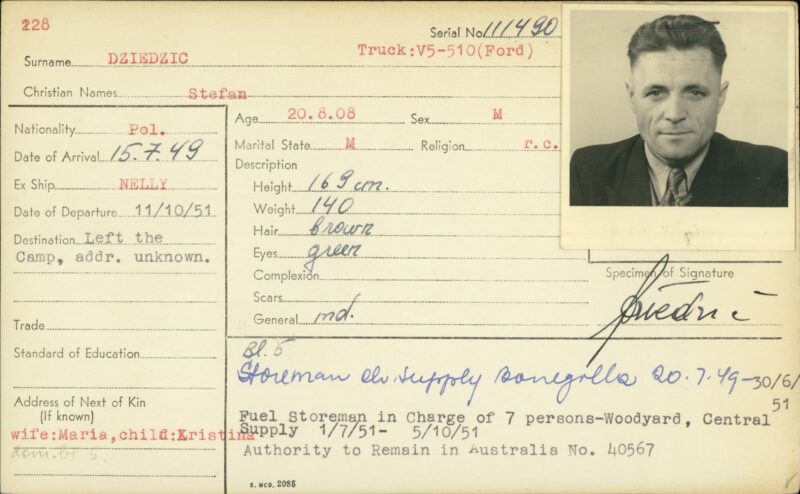 228
Serial No. 111490
Truck:V5-510(Ford)
Surname DZIEDZIC
Christian Names Stefan
Nationality Pol.
Date of Arrival 15.7.49
Ex Ship NELLY
Date of Departure 11/10/51
Destination Left the
Camp, addr. unknown.
Trade
Standard of Education
Address of Next of Kin
(If known)
wife:Maria,child:Kristina
Age 20.8.08 Sex M
Marital State M Religion r.c.
Description
Height 169 cm.
Weight 140
Hair brown
Eyes green
Complexion
Scars
General md.
Specimen of Signature
Bl. 5
Storeman Supply Bonegilla 20.7.49-30/6/
51
Fuel Storeman in Charge of 7 persons-Woodyard, Central
Supply 1/7/51- 5/10/51
Authority to Remain in Australia No. 40567
S. MED. 2085